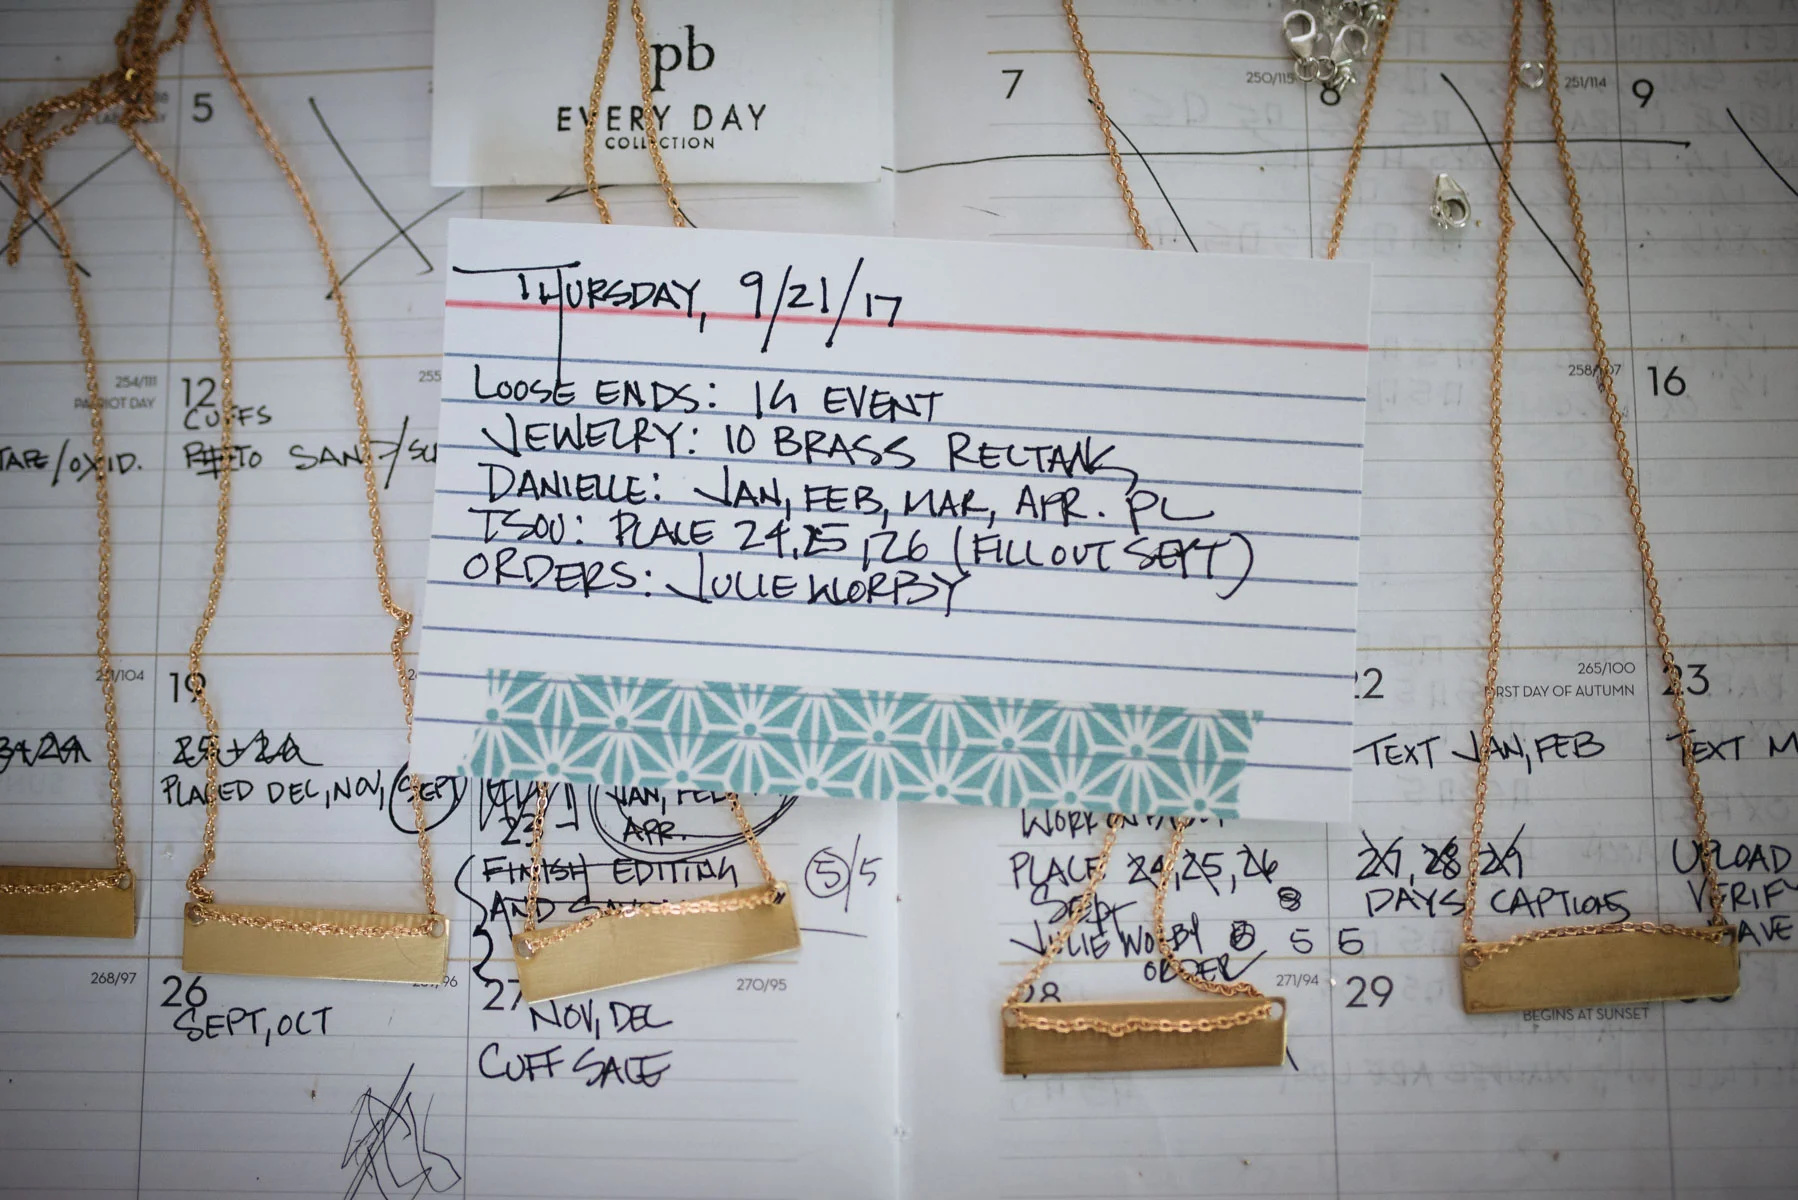 pb
EVERY DAY
COLLECTION
5
7
250/115
8
251/114
9
THURSDAY, 9/21/17
LOOSE ENDS: IG EVENT
JEWELRY: 10 BRASS RECTANG
DANIELLE: JAN, FEB, MAR, APR. PL
TSOU: PLACE 24, 25, 26 (FILL OUT SEPT)
ORDERS: JULIE WORBY
254/111
PATRIOT DAY
12
255
CUFFS
TAPE/OXID.
TO SAND/SU
258/107
16
/104
19
22
265/100
FIRST DAY OF AUTUMN
23
PLACED DEC, NOV, SEPT
JAN, FEB
23
APR.
FINISH EDITING
AND
5/5
TEXT JAN, FEB
TEXT M
PLACE 24, 25, 26
SEPT 8
JULIE WORBY 5 5
ORDER
27, 28 29
DAYS CAPTIONS
UPLOAD
VERIFY
SAVE
268/97
26
SEPT, OCT
27
270/95
NOV, DEC
CUFF SALE
28
271/94
29
BEGINS AT SUNSET